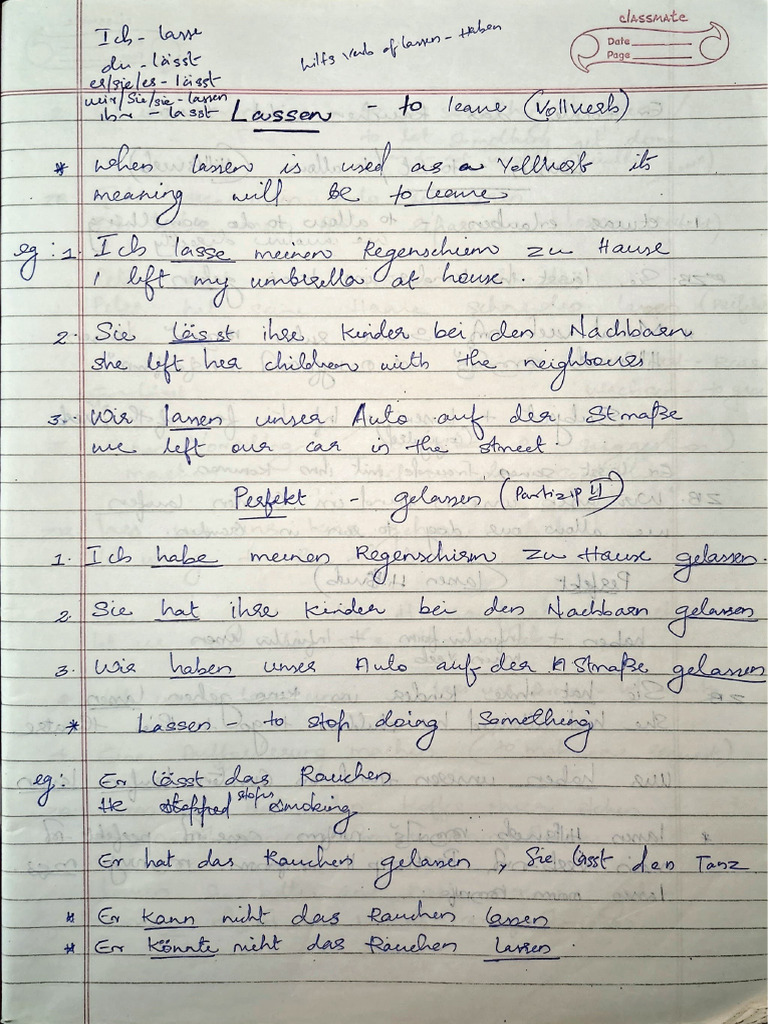 classmate
Date
Page
Ich - lasse
du - lässt
er/sie/es - lässt
wir/Sie/sie - lassen
ihr - lasst
hilfs verb of lassen - Haben
Lassen - to leave (Vollverb)
* when lassen is used as a Vollverb its
meaning will be to leave
eg: 1. Ich lasse meinen Regenschirm zu Hause
I left my umbrella at house.
2. Sie lässt ihre kinder bei den Nachbarn
she left her children with the neighbours
3. Wir lassen unser Auto auf der Straße
we left our car in the street.
Perfekt - gelassen (Partizip II)
1. Ich habe meinen Regenschirm zu Hause gelassen.
2. Sie hat ihre kinder bei den Nachbarn gelassen
3. Wir haben unser Auto auf der Straße gelassen
* Lassen - to stop doing something
eg: Er lässt das Rauchen
He stops smoking
Er hat das Rauchen gelassen, Sie lässt den Tanz
* Er kann nicht das Rauchen lassen
* Er könnte nicht das Rauchen lassen.